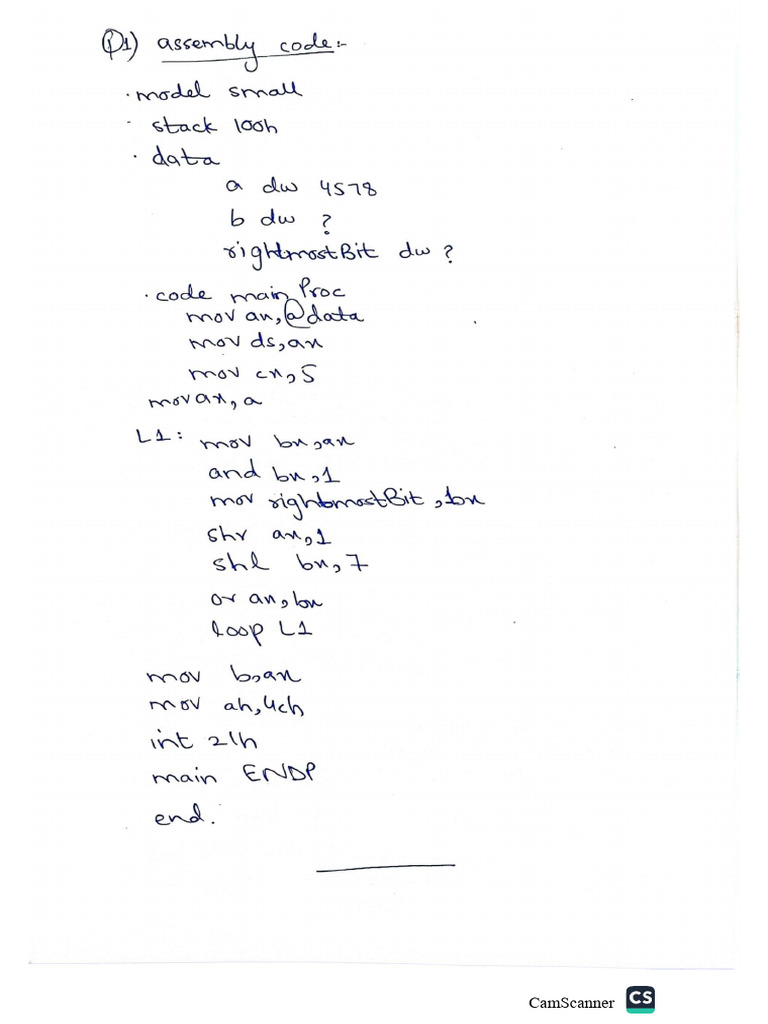 Q1) assembly code:-
.model small
. stack 100h
. data
a dw 4578
b dw ?
rightmostBit dw ?
.code main Proc
mov ax,@data
mov ds,ax
mov cx,5
mov ax,a
L1: mov bx,ax
and bx,1
mov rightmostBit,bx
shr ax,1
shl bx,7
or ax,bx
loop L1
mov b,ax
mov ah,4ch
int 21h
main ENDP
end.
CamScanner CS